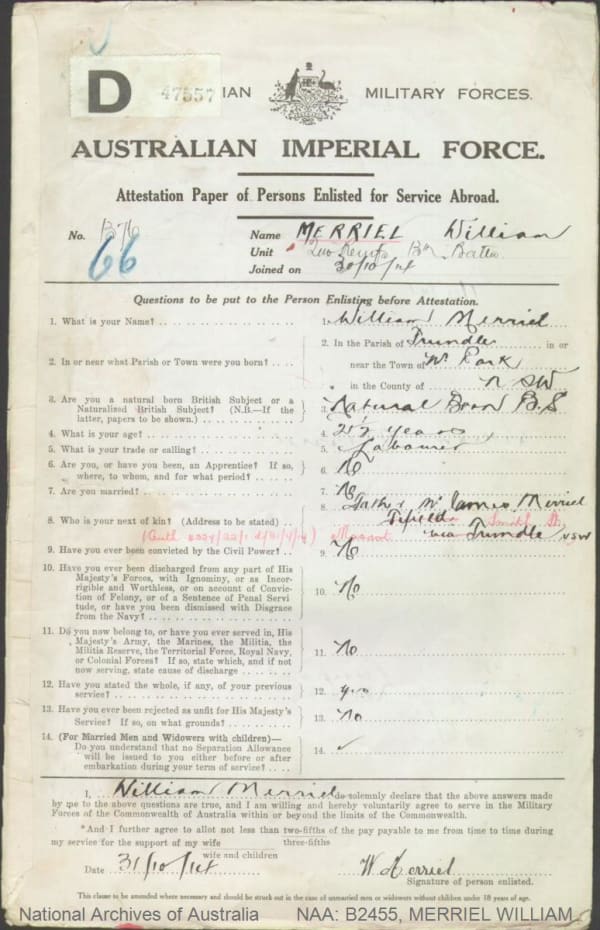 D 47557 IAN MILITARY FORCES.
AUSTRALIAN IMPERIAL FORCE.
Attestation Paper of Persons Enlisted for Service Abroad.
No. B76 Name MERRIEL William
66 Unit Bn
Joined on 30/10/14
Questions to be put to the Person Enlisting before Attestation.
1. What is your Name? 1. William Merriel
2. In or near what Parish or Town were you born? 2. In the Parish of Trundle in or
near the Town of Nr Park
in the County of NSW
3. Are you a natural born British Subject or a
Naturalised British Subject? (N.B.—If the
latter, papers to be shown.) 3. Natural Born B.S
4. What is your age? 4. years
5. What is your trade or calling? 5. Labourer
6. Are you, or have you been, an Apprentice? If so,
where, to whom, and for what period? 6. No
7. Are you married? 7. No
8. Who is your next of kin? (Address to be stated) 8. Father Mr James Merriel
Fifield
via Trundle NSW
9. Have you ever been convicted by the Civil Power? 9. No
10. Have you ever been discharged from any part of His
Majesty's Forces, with Ignominy, or as Incor-
rigible and Worthless, or on account of Convic-
tion of Felony, or of a Sentence of Penal Servi-
tude, or have you been Dismissed with Disgrace
from the Navy? 10. No
11. Do you now belong to, or have you ever served in, His
Majesty's Army, the Marines, the Militia, the
Militia Reserve, the Territorial Force, Royal Navy,
or Colonial Forces? If so, state which, and if not
now serving, state cause of discharge 11. No
12. Have you stated the whole, if any, of your previous
service? 12. yes
13. Have you ever been rejected as unfit for His Majesty's
Service? If so, on what grounds? 13. No
14. (For Married Men and Widowers with children)—
Do you understand that no Separation Allowance
will be issued to you either before or after
embarkation during your term of service? 14. ✓
I, William Merriel do solemnly declare that the above answers made
by me to the above questions are true, and I am willing and hereby voluntarily agree to serve in the Military
Forces of the Commonwealth of Australia within or beyond the limits of the Commonwealth.
*And I further agree to allot not less than two-fifths of the pay payable to me from time to time during
my service for the support of my wife three-fifths
wife and children
Date 31/10/14 W Merriel
Signature of person enlisted.
This clause to be amended where necessary and should be struck out in the case of unmarried men or widowers without children under 18 years of age.
National Archives of Australia NAA: B2455, MERRIEL WILLIAM